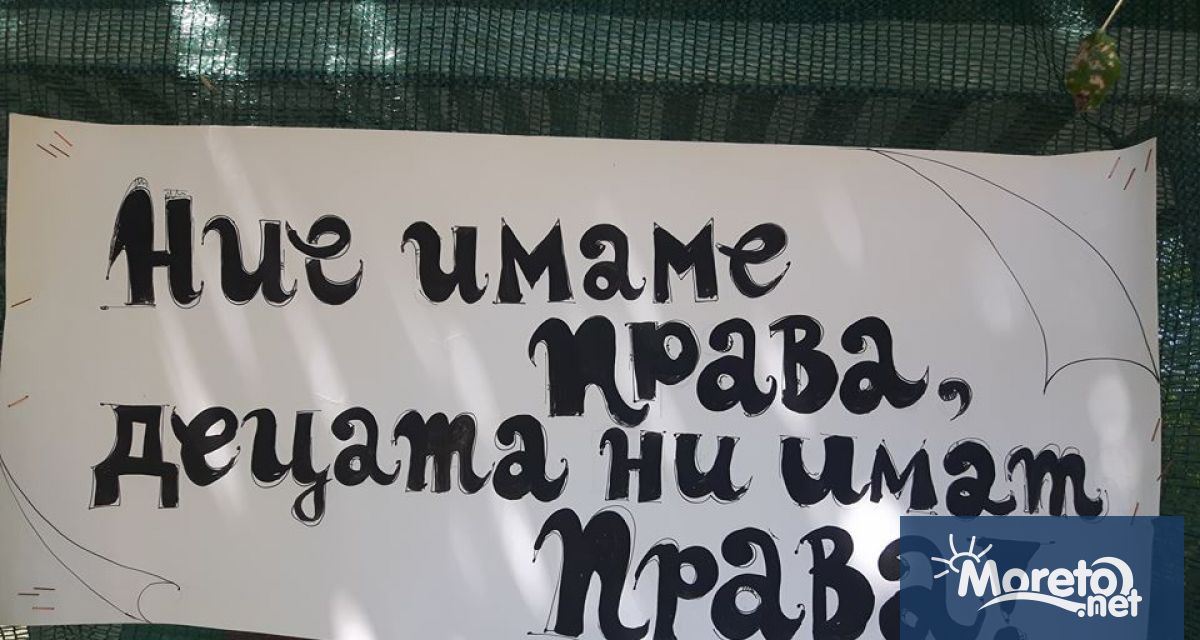 Ние имаме
права,
децата ни имат
права!
Moreto
.net